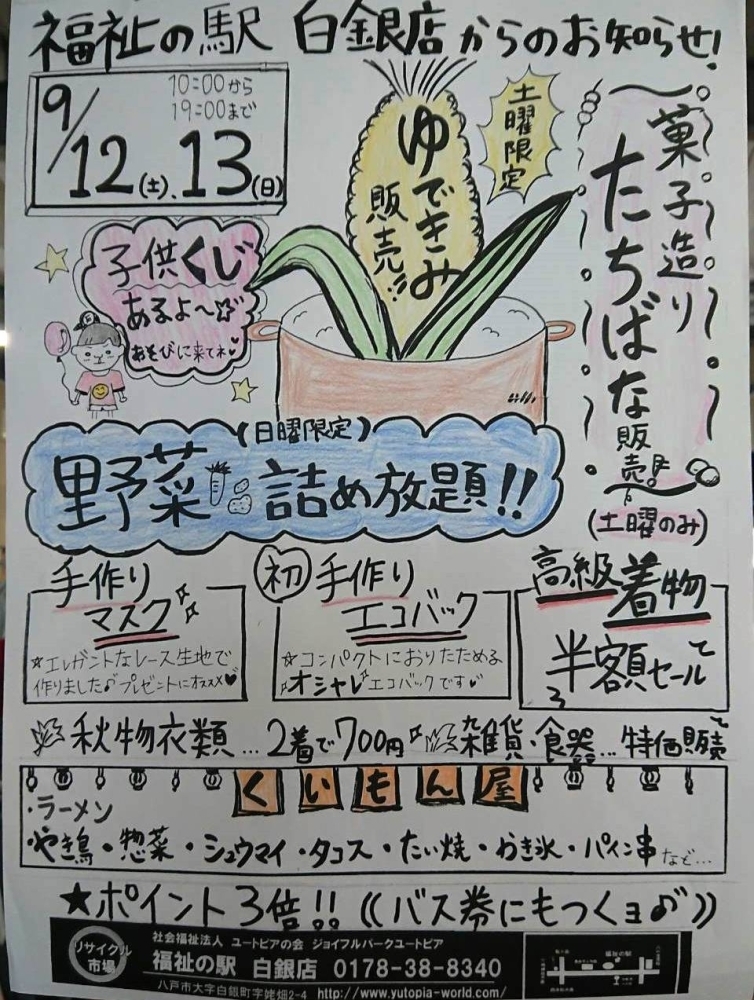 福祉の駅 白銀店からのお知らせ!
9/12(土)、13(日)
10:00から
19:00まで
土曜限定
ゆできみ
販売!!
菓子造り
たちばな販売!
(土曜のみ)
子供くじ
あるよ〜☆
あそびに来てネ♥
(日曜限定)
野菜 詰め放題!!
手作り
マスク
☆エレガントなレース生地で
作りました♪プレゼントにオススメ♥
初 手作り
エコバック
☆コンパクトにおりたためる
オシャレエコバックです
高級着物
半額セール
秋物衣類…2着で700円
雑貨・食器…特価販売
くいもん屋
・ラーメン
・やき鳥・惣菜・シュウマイ・タコス・たい焼・かき氷・パイン串など…
★ポイント3倍!! ((バス券にもつくョ♪))
リサイクル
市場
社会福祉法人 ユートピアの会 ジョイフルパークユートピア
福祉の駅 白銀店 0178-38-8340
八戸市大字白銀町字姥畑2-4 http://www.yutopia-world.com/
福祉の駅